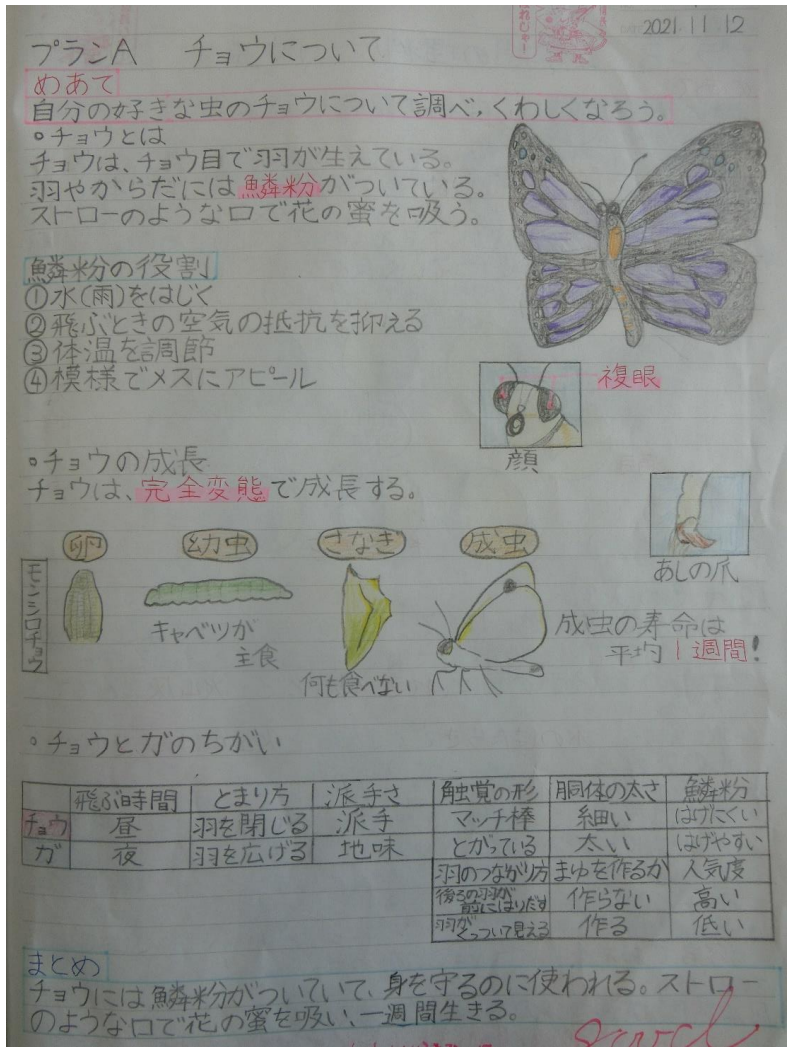 2021.11.12
プランA チョウについて
めあて
自分の好きな虫のチョウについて調べ,くわしくなろう。
・チョウとは
チョウは、チョウ目で羽が生えている。
羽やからだには鱗粉がついている。
ストローのような口で花の蜜を吸う。
鱗粉の役割
①水(雨)をはじく
②飛ぶときの空気の抵抗を抑える
③体温を調節
④模様でメスにアピール
複眼
顔
・チョウの成長
チョウは、完全変態で成長する。
あしの爪
卵 幼虫 さなぎ 成虫
モンシロチョウ
キャベツが
主食
何も食べない
成虫の寿命は
平均1週間!
・チョウとガのちがい
飛ぶ時間 とまり方 派手さ 触覚の形 胴体の太さ 鱗粉
チョウ 昼 羽を閉じる 派手 マッチ棒 細い はげにくい
ガ 夜 羽を広げる 地味 とがっている 太い はげやすい
羽のつながり方 まゆを作るか 人気度
後ろの羽が
前にはりだす 作らない 高い
羽が
くっついて見える 作る 低い
まとめ
チョウには鱗粉がついていて、身を守るのに使われる。ストロー
のような口で花の蜜を吸い、一週間生きる。